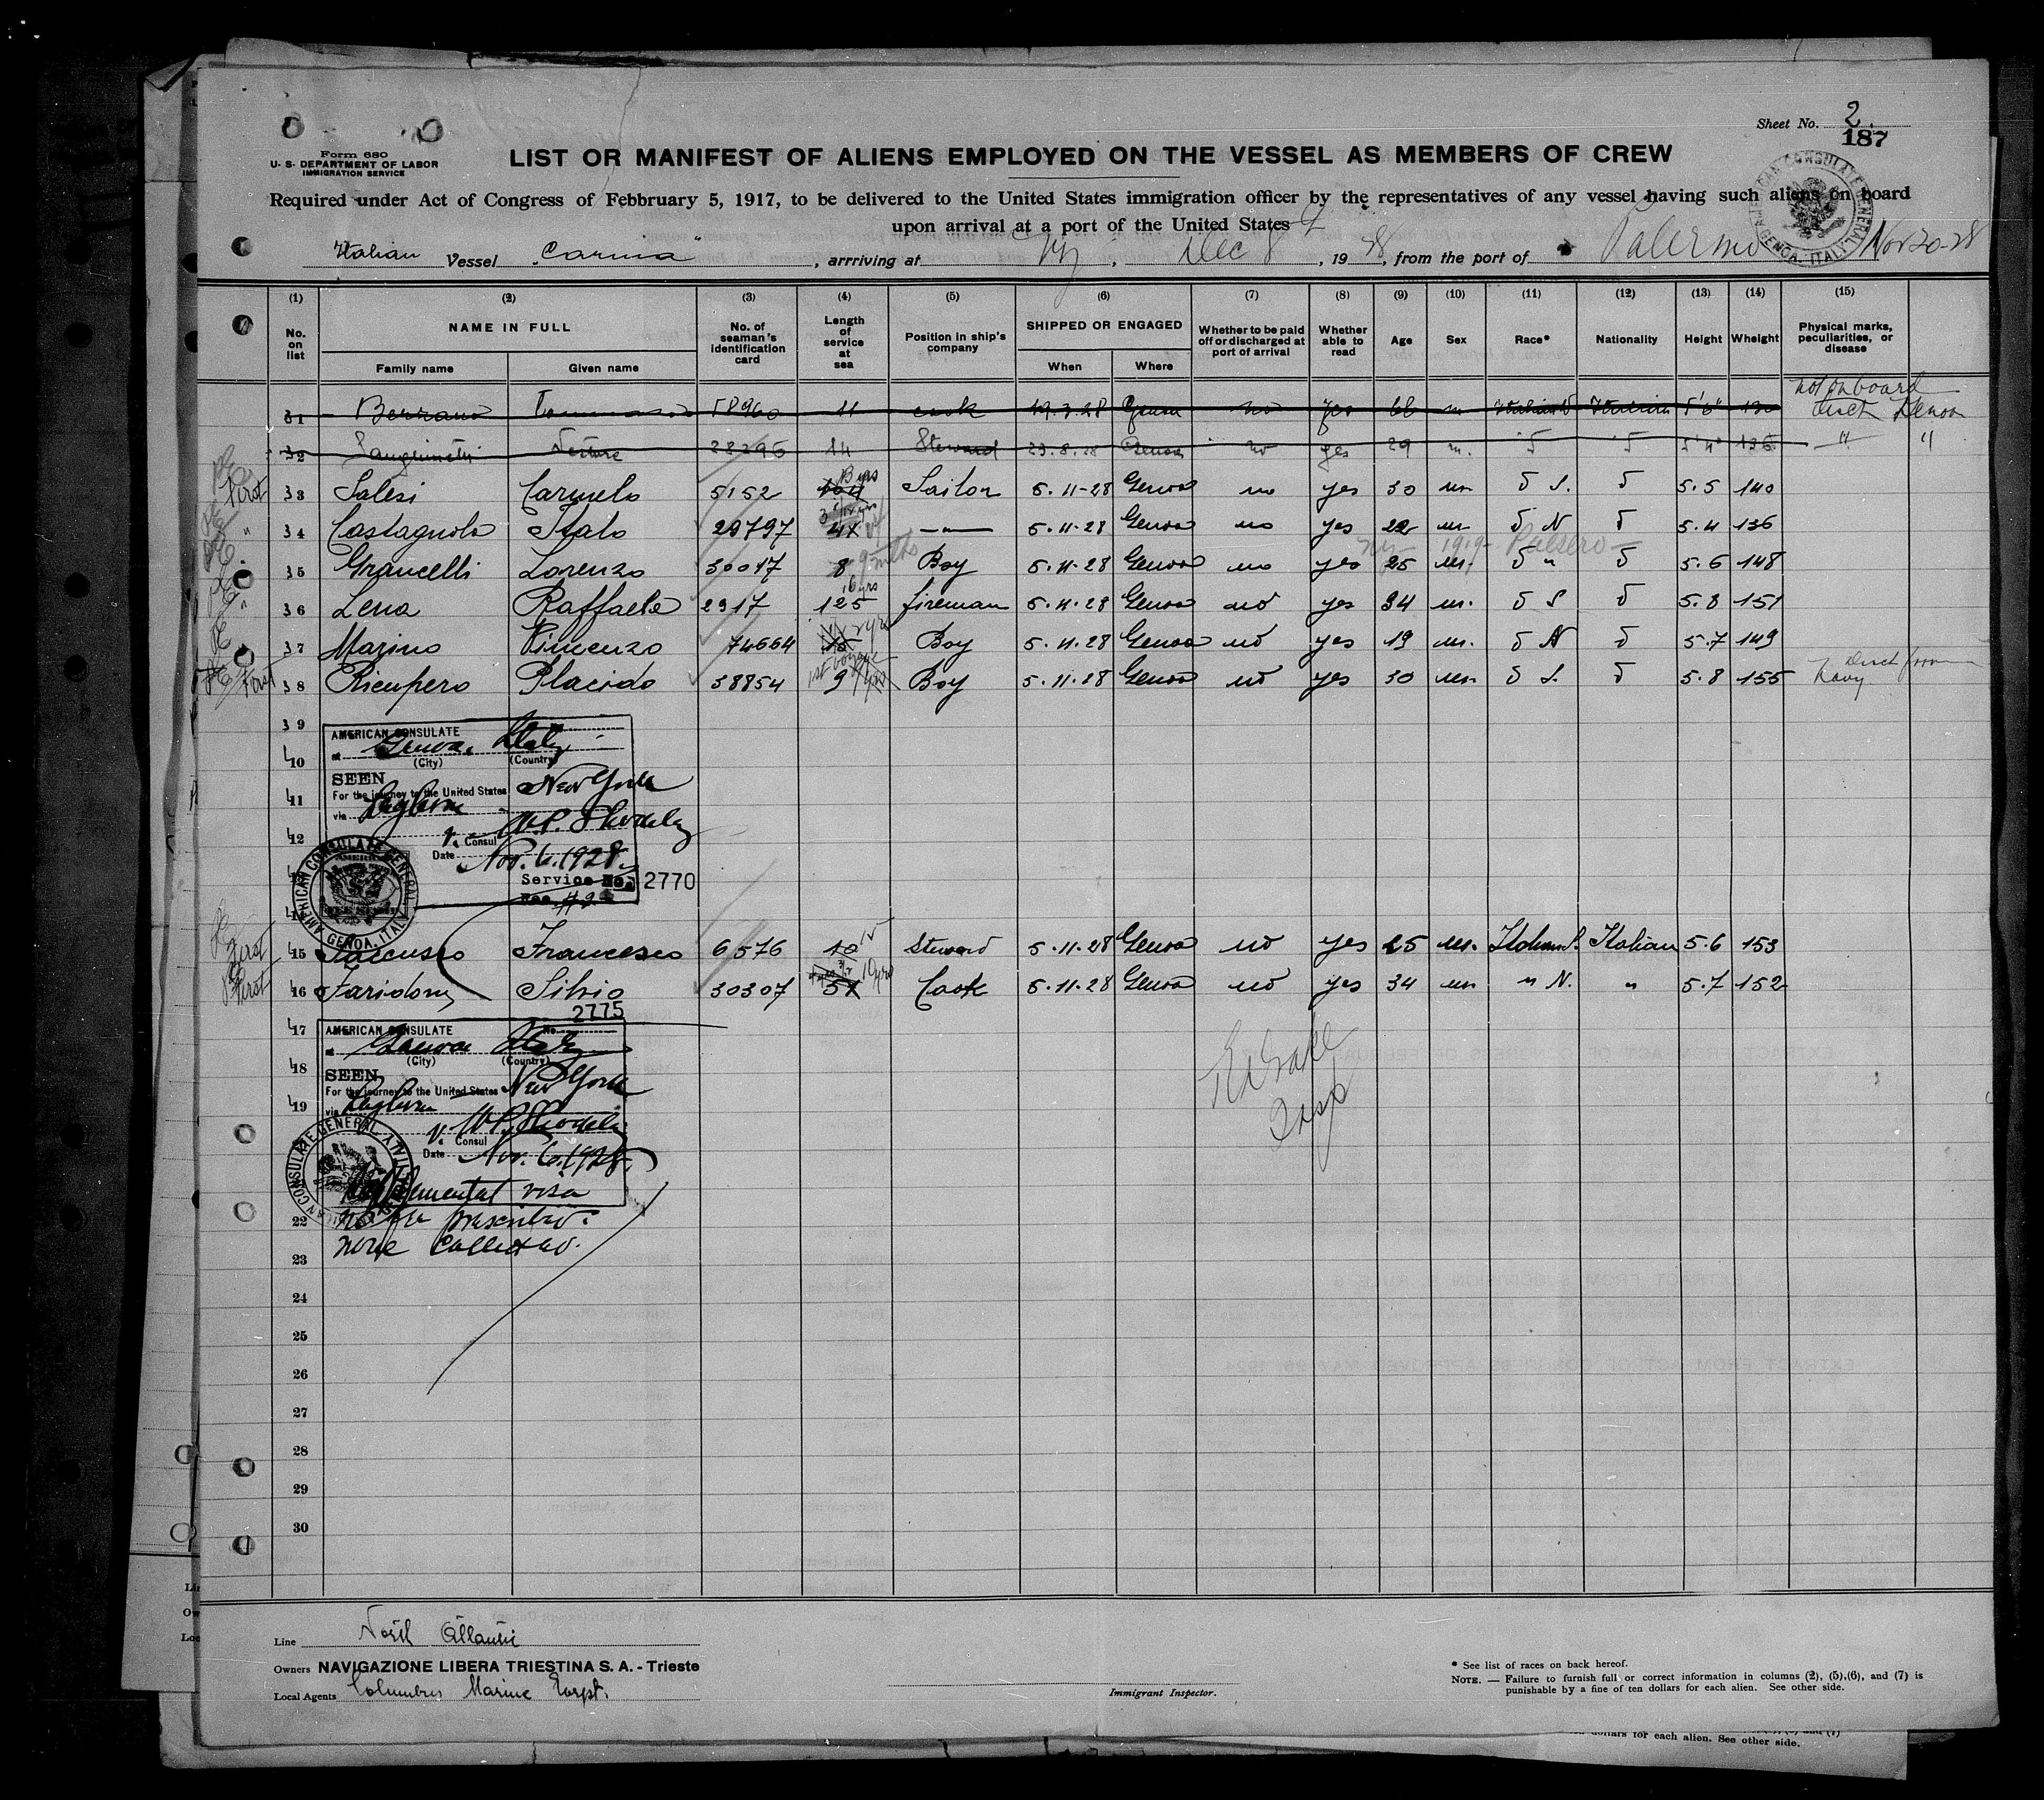 Sheet No. 2.
187
Form 680
U. S. DEPARTMENT OF LABOR
IMMIGRATION SERVICE
LIST OR MANIFEST OF ALIENS EMPLOYED ON THE VESSEL AS MEMBERS OF CREW
Required under Act of Congress of Febbruary 5, 1917, to be delivered to the United States immigration officer by the representatives of any vessel having such aliens on board
upon arrival at a port of the United States
Italian Vessel "Carnia", arrriving at NY, Dec 8, 1928, from the port of Palermo Nov 20-28
AMERICAN CONSULATE GENERAL, GENOA, ITALY
(1) (2) (3) (4) (5) (6) (7) (8) (9) (10) (11) (12) (13) (14) (15)
No. on list
NAME IN FULL
Family name
Given name
No. of seaman's identification card
Length of service at sea
Position in ship's company
SHIPPED OR ENGAGED
When
Where
Whether to be paid off or discharged at port of arrival
Whether able to read
Age
Sex
Race*
Nationality
Height
Wheight
Physical marks, peculiarities, or disease
not on board
31 58960 11 cook 19.3.28 Genoa no yes m Italian N Italian 5'6" Genoa
32 28296 14 Steward 23.8.28 Genoa no yes 29 m. 5'4" 136 " "
First 33 Salesi Carmelo 5152 13 yrs Sailor 5.11-28 Genoa no yes 30 m S. 5.5 140
" 34 Castagnola Italo 29797 — " — 5.11.28 Genoa no yes 22 m N 5.4 136
NY 1919-
35 Grancelli Lorenzo 30017 8 9 mths Boy 5.11.28 Genoa no yes 25 m. " 5.6 148
" 36 Lena Raffaele 2917 125 16 yrs fireman 5.11.28 Genoa no yes 34 m. S 5.8 151
37 Marino Vincenzo 74664 2 yrs Boy 5.11.28 Genoa no yes 19 m. N 5.7 149
First 38 Ricupero Placido 38854 9 1st voyage Boy 5.11.28 Genoa no yes 30 m S. 5.8 155 Disch from Navy
39
10
11
12
AMERICAN CONSULATE
at Genoa, Italy
(City) (Country)
SEEN
For the journey to the United States New York
via Leghorn
V. Consul
Date Nov. 6. 1928.
Service No. 2770
AMERICAN CONSULATE GENERAL GENOA, ITALY
First 15 Saccusso Francesco 6576 10 Steward 5.11.28 Genoa no yes 25 m. Italian S. Italian 5.6 153
First 16 Zaridony Silvio 30307 10 yrs Cook 5.11.28 Genoa no yes 34 m " N. " 5.7 152
17
18
19
No. 2775
AMERICAN CONSULATE
at Genoa Italy
(City) (Country)
SEEN
For the journey to the United States New York
via Leghorn
V. Consul
Date Nov. 6. 1928.
AMERICAN CONSULATE GENERAL
Supplemental visa
no fee prescribed:
none collected.
Insp
22
23
24
25
26
27
28
29
30
Line North Atlantic
Owners NAVIGAZIONE LIBERA TRIESTINA S. A. - Trieste
Local Agents Columbus Marine Corpt.
Immigrant Inspector.
* See list of races on back hereof.
NOTE. — Failure to furnish full or correct information in columns (2), (5),(6), and (7) is
punishable by a fine of ten dollars for each alien. See other side.
dollars for each alien. See other side.